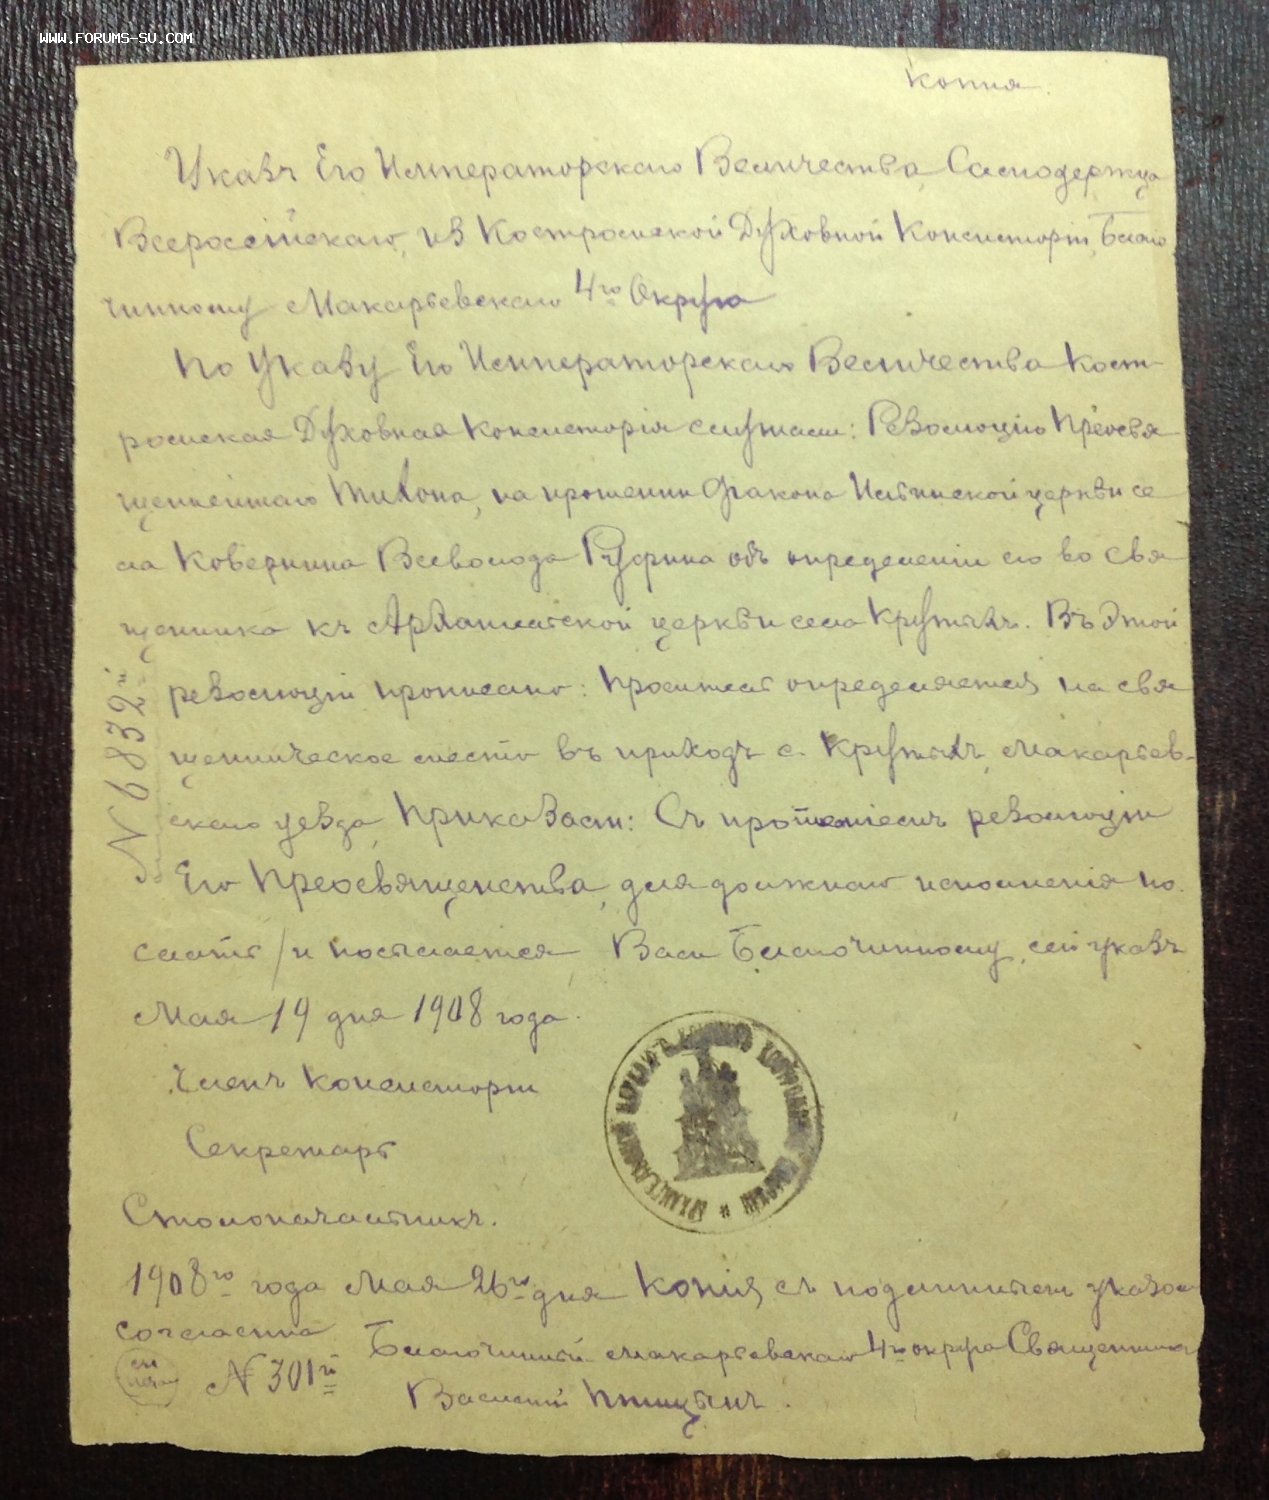 WWW.FORUMS-SU.COM
Копия.
Указъ Его Императорскаго Величества, Самодержца
Всероссійскаго, изъ Костромской Духовной Консисторіи, Благо
чинному Макарьевскаго 4го Округа
По Указу Его Императорскаго Величества Кост-
ромская Духовная Консисторія слушали: Резолюцію Преосвя
щеннѣйшаго Тихона, на прошении діакона Ильинской церкви се
ла Ковернина Всеволода Руфина объ опредѣленіи его во свя
щенника къ Архангельской церкви села Крутыхъ. Въ этой
резолюціи прописано: Проситель опредѣляется на свя
щенническое мѣсто въ приходъ с. Крутыхъ, Макарьев-
скаго уезда, Приказали: Съ прописаніемъ резолюціи
Его Преосвященства, для должнаго исполненія по
слать / и посылается Вамъ Благочинному, сей указъ
Мая 19 дня 1908 года.
Членъ Консисторіи
Секретарь
Столоначальникъ.
1908го года Мая 26го дня Копія съ подлиннымъ указомъ
согласна
Благочинный Макарьевскаго 4го округа Священникъ
№ 301й
Василій Птицынъ.
№ 6832й